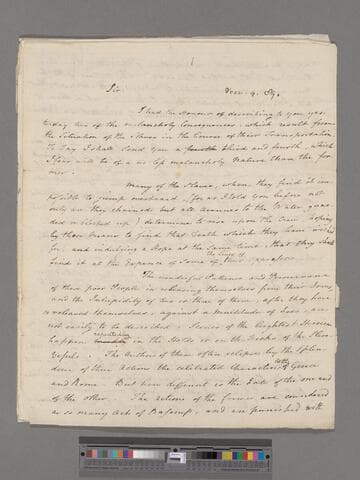 1
Sir Decr. 9. 89.
I had the Honour of describing to you yes-
terday two of the melancholy Consequences, which result from
the Situation of the Slaves in the Course of their Transportation
To Day I shall send you a fourth third and fourth, which
I fear will be of a no less melancholy Nature than the for
mer.
Many of the Slaves, when they find it im
possible to jump overboard, (for as I told you before not
only are they chained but all Avenues to the Water guar-
ded or stopped up) determine to rise upon the Crew, hoping
by these means to find that Death which they have wished
for, and indulging a Hope at the same time, that they shall
the Lives of
find it at the Expence of some of their Oppressors.
The wonderful Patience and Perseverance
of these poor People in releasing themselves from their Irons,
and the Intrepidity of two or three of them, after they have
released themselves, against a Multitude of Foes, are
not easily to be described. Scenes of the brightest Heroism
repeatedly
happen in the Holds or on the Decks of the Slave
Vessels. The Authors of them often eclipse by the Splen
dour of their Actions the celebrated Characters both of Greece
and Rome. But how different is the Fate of the one and
of the other. The Actions of the former are considered
as so many Acts of Baseness, and are punished with